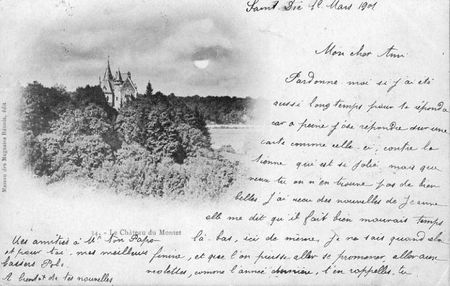 Saint Dié 12 Mars 1901
Mon cher Ami
Pardonne moi si j'ai été
aussi longtemps pour te répondre
car a peine j'ose répondre sur une
carte comme celle-ci, contre la
tienne qui est si jolie, mais que
veux tu on n'en trouve pas de bien
belles. J'ai reçu des nouvelles de Jeanne
elle me dit qu'il fait bien mauvais temps
là-bas, ici de même, je ne sais quand ce
finira, et que l'on puisse aller se promener, aller aux
violettes, comme l'année dernière, t'en rappelles-tu
Maison des Magasins Réunis, édit.
54. - Le Château du Montet
Mes amitiés à Mr Ton Papa
et pour toi, mes meilleurs
baisers
A bientôt de tes nouvelles